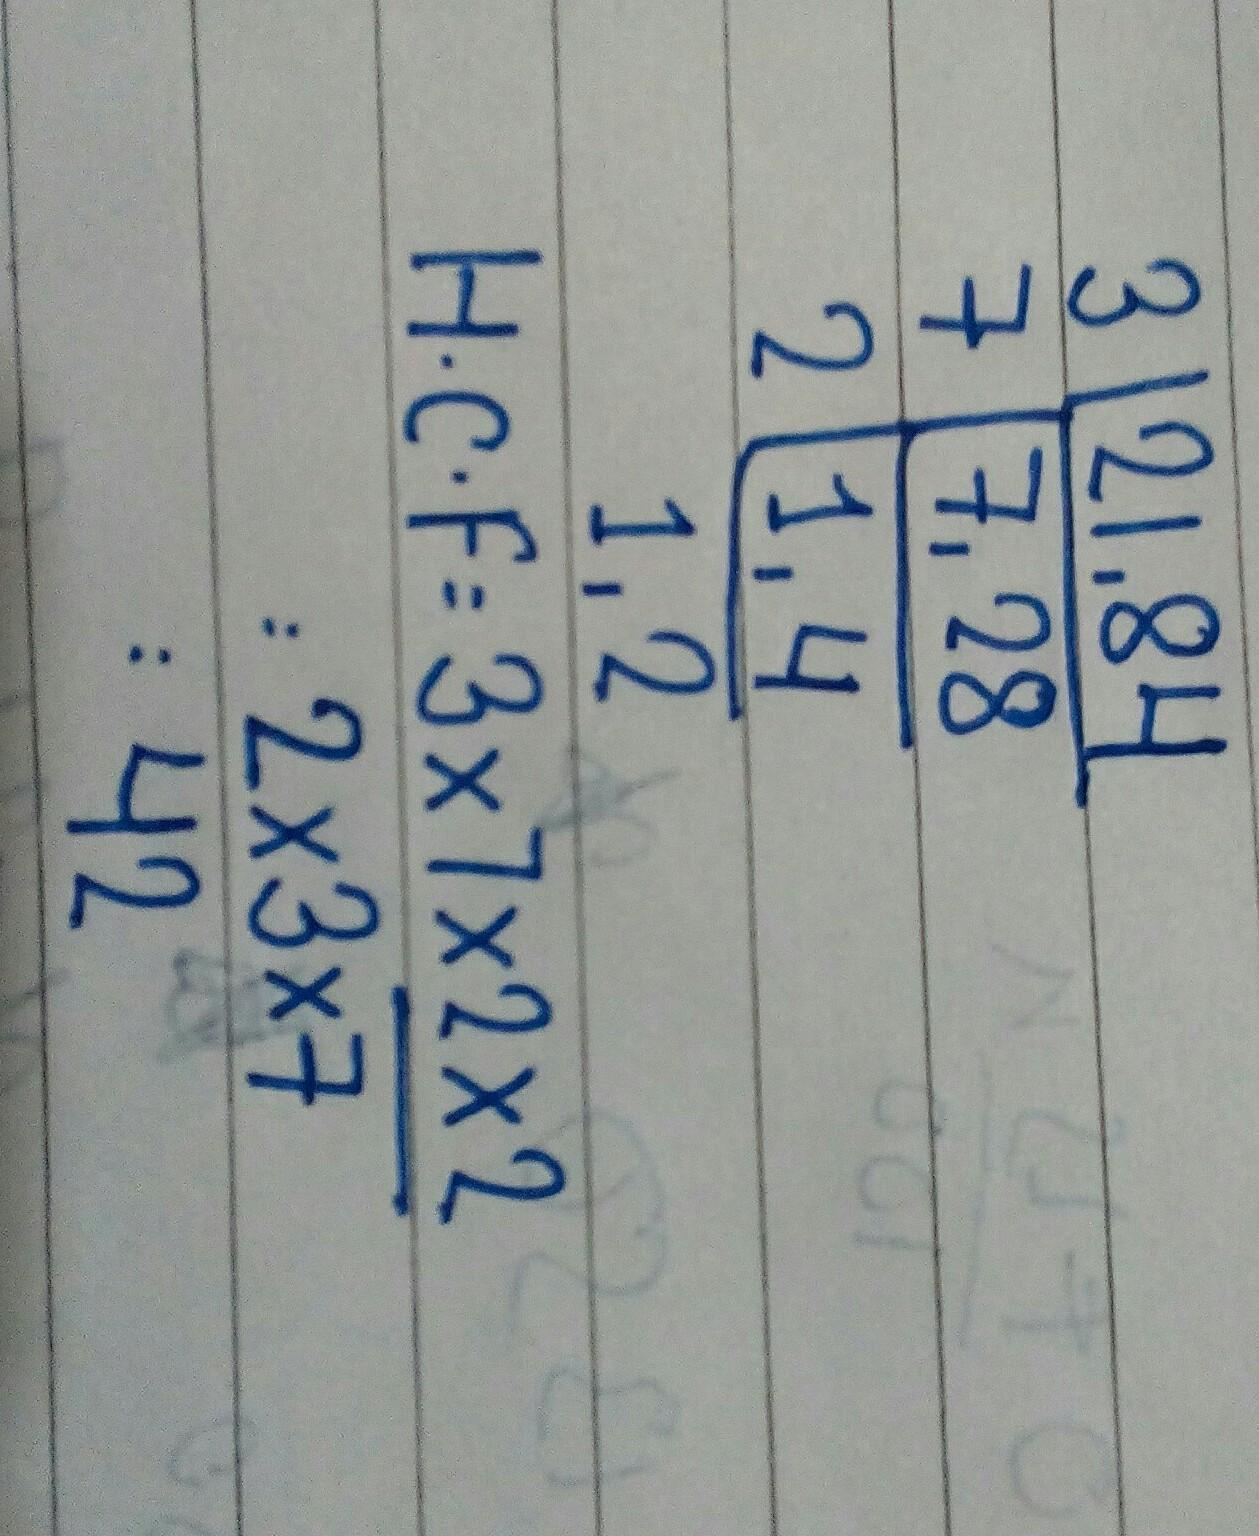 3 | 21,84
7 | 7,28
2 | 1,4
1,2
H.C.F = 3 x 7 x 2 x 2
: 2 x 3 x 7
: 42